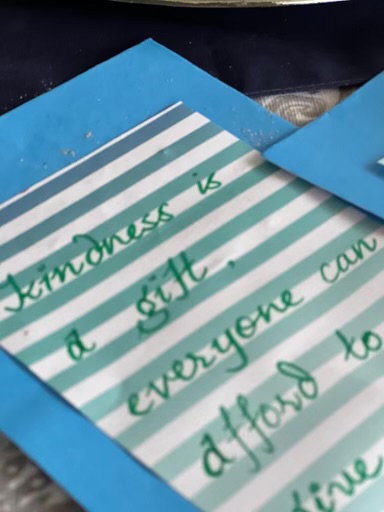 kindness is
a gift.
everyone can
afford to
give